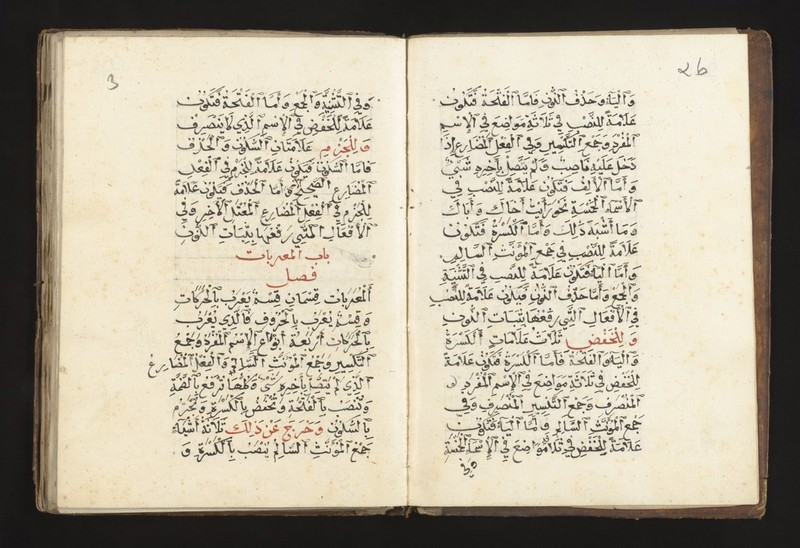 2b
والياء وحذف النون فاما الفتحة فتكون
علامة للنصب في ثلاثة مواضع في الاسم
المفرد وجمع التكسير وفي الفعل المضارع اذا
دخل عليه ناصب ولم يتصل بآخره شيء
واما الالف فتكون علامة للنصب في
الاسماء الخمسة نحو رأيت اخاك واباك
وما اشبه ذلك واما الكسرة فتكون
علامة للنصب في جمع المؤنث السالم
واما الياء فتكون علامة للنصب في التثنية
والجمع واما حذف النون فيكون علامة للنصب
في الافعال التي رفعها بثبات النون
وللخفض ثلاث علامات الكسرة
والياء والفتحة فاما الكسرة فتكون علامة
للخفض في ثلاثة مواضع في الاسم المفرد
المنصرف وجمع التكسير المنصرف وفي
جمع المؤنث السالم واما الياء فتكون
علامة للخفض في ثلاثة مواضع في الاسماء الخمسة
3
وفي التثنية والجمع واما الفتحة فتكون
علامة للخفض في الاسم الذي لا ينصرف
وللجزم علامتان السكون والحذف
فاما السكون فيكون علامة للجزم في الفعل
المضارع الصحيح واما الحذف فيكون علامة
للجزم في الفعل المضارع المعتل الآخر وفي
الافعال التي رفعها بثبات النون
باب المعربات
فصل
المعربات قسمان قسم يعرب بالحركات
وقسم يعرب بالحروف فالذي يعرب
بالحركات اربعة انواع الاسم المفرد وجمع
التكسير وجمع المؤنث السالم والفعل المضارع
الذي لم يتصل بآخره شيء وكلها ترفع بالضمة
وتنصب بالفتحة وتخفض بالكسرة وتجزم
بالسكون وخرج عن ذلك ثلاثة اشياء
جمع المؤنث السالم ينصب بالكسرة و